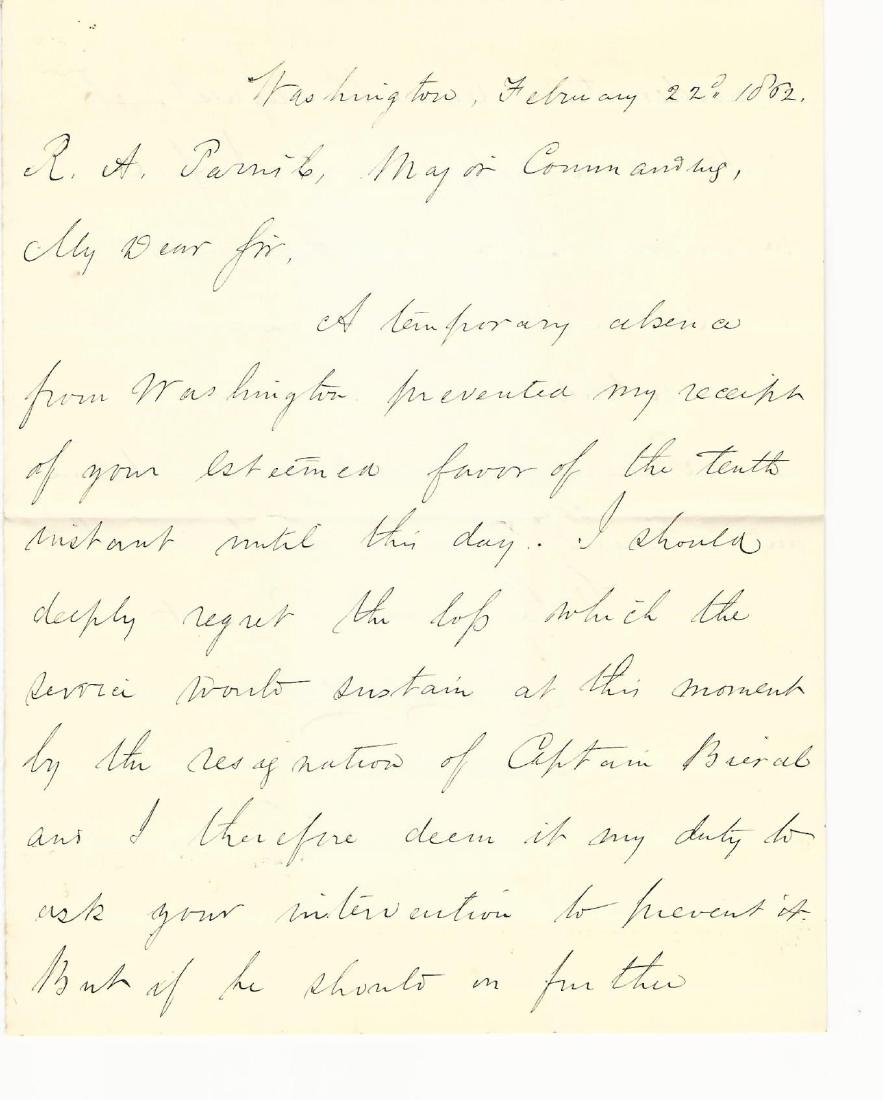 Washington, February 22d, 1862.
R. A. Parrish, Major Commanding,
My Dear Sir,
A temporary absence
from Washington prevented my receipt
of your esteemed favor of the tenth
instant until this day. I should
deeply regret the loss which the
service would sustain at this moment
by the resignation of Captain Bieral
and I therefore deem it my duty to
ask your intervention to prevent it.
But if he should on further